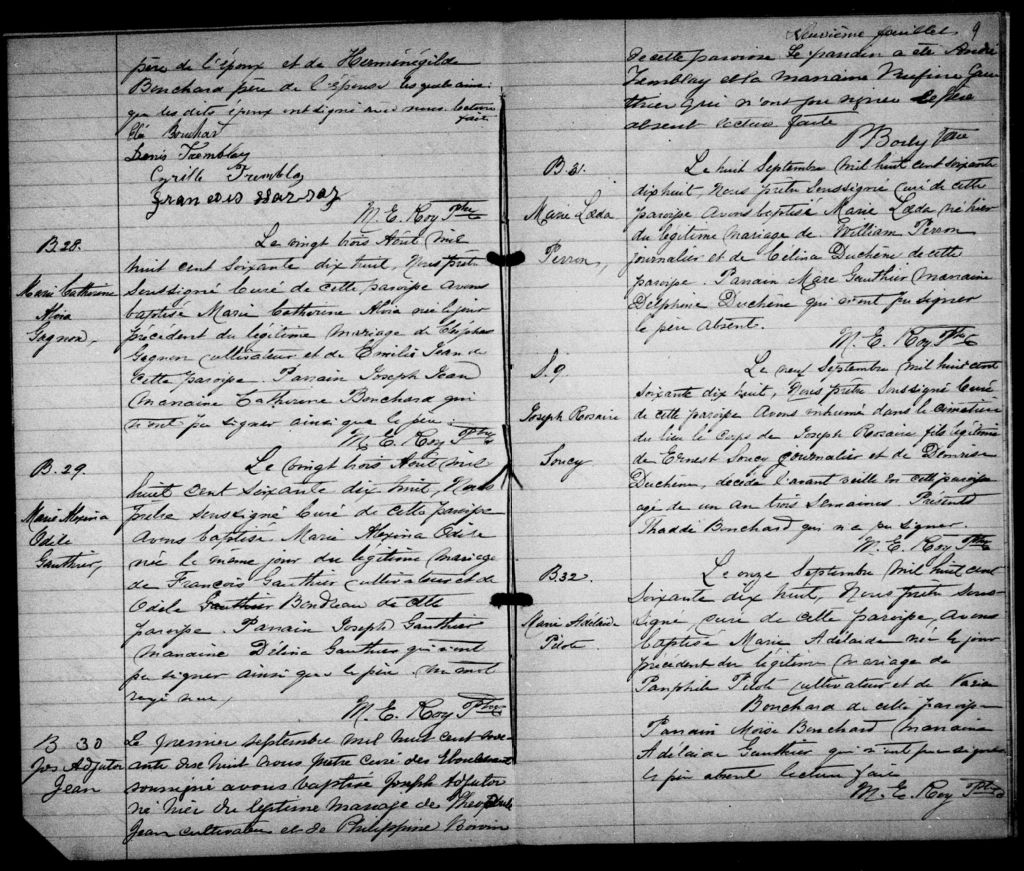 père de l'époux et de Herménégilde
Bouchard père de l'épouse lesquels ainsi
que les dits époux ont signé avec nous. lecture
faite
Denis Tremblay
Cyrille Tremblay
François
M. E. Roy Ptre
B 28.
Marie Catherine
Alvia
Gagnon,
Le vingt trois Août mil
huit cent soixante dix huit, Nous prêtre
soussigné Curé de cette paroisse avons
baptisé Marie Catherine Alvia née le jour
précédent du légitime mariage de Eléphas
Gagnon cultivateur et de Emilie Jean de
cette paroisse. Parrain Joseph Jean
Marraine Catherine Bouchard qui
n'ont pu signer ainsi que le père.
M. E. Roy Ptre
B. 29
Marie Alexina
Odile
Gauthier,
Le vingt trois Août mil
huit cent soixante dix huit, Nous
prêtre soussigné Curé de cette paroisse
avons baptisé Marie Alexina Odile
née le même jour du légitime mariage
de François Gauthier cultivateur et de
Odile Gauthier Boudreau de cette
paroisse. Parrain Joseph Gauthier
Marraine Délina Gauthier qui n'ont
pu signer ainsi que le père Un mot
rayé nul,
M. E. Roy Ptre
B 30
Jos Adjutor
Jean
Le premier septembre mil huit cent soix-
ante dix huit nous prêtre curé des Eboulements
soussigné avons baptisé Joseph Adjutor
né hier du légitime mariage de
Jean cultivateur et de Philippine Boivin
Neuvième feuillet 9
de cette paroisse Le parrain a été André
Tremblay et la marraine Gau
thier qui n'ont pu signer le père
absent lecture faite
P Boily Ptre
B. 31.
Marie Læda
Perron,
Le huit Septembre mil huit cent soixante
dix huit, Nous prêtre soussigné curé de cette
paroisse avons baptisé Marie Læda née hier
du légitime mariage de William Perron
journalier et de Célina Duchêne de cette
paroisse. Parrain Marc Gauthier Marraine
Delphine Duchêne qui n'ont pu signer
le père absent.
M. E. Roy Ptre
S. 9
Joseph Rosaire
Soucy
Le neuf Septembre mil huit cent
soixante dix huit, Nous prêtre soussigné Curé
de cette paroisse avons inhumé dans le cimetière
du lieu le Corps de Joseph Rosaire fils légitime
de Ernest Soucy journalier et de Démerise
Duchêne, décédé l'avant veille en cette paroisse
agé de un an trois semaines. Présent
Thaddé Bouchard qui n'a pu signer.
M. E. Roy Ptre
B 32.
Marie Adélaide
Pilote
Le onze Septembre mil huit cent
soixante dix huit, Nous prêtre sous-
signé curé de cette paroisse, avons
baptisé Marie Adélaide née le jour
précédent du légitime mariage de
Pamphile Pilote cultivateur et de
Bouchard de cette paroisse
Parrain Moïse Bouchard marraine
Adélaide Gauthier qui n'ont pu signer
le père absent lecture faite
M. E. Roy Ptre